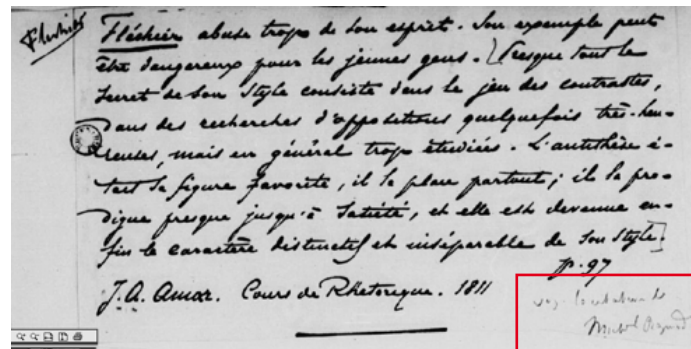 Fléchier
Fléchier abuse trop de son esprit. Son exemple peut
être dangereux pour les jeunes gens. [Presque tout le
secret de son style consiste dans le jeu des contrastes,
dans des recherches d'oppositions quelquefois très-heu-
reuses, mais en général trop étudiées. L'antithèse é-
tait sa figure favorite, il la place partout; il la pro-
digue presque jusqu'à satiété, et elle est devenue en-
fin le caractère distinctif et inséparable de son style.]
p. 97
J. A. Amar. Cours de Rhétorique. 1811
voy. de
Michel